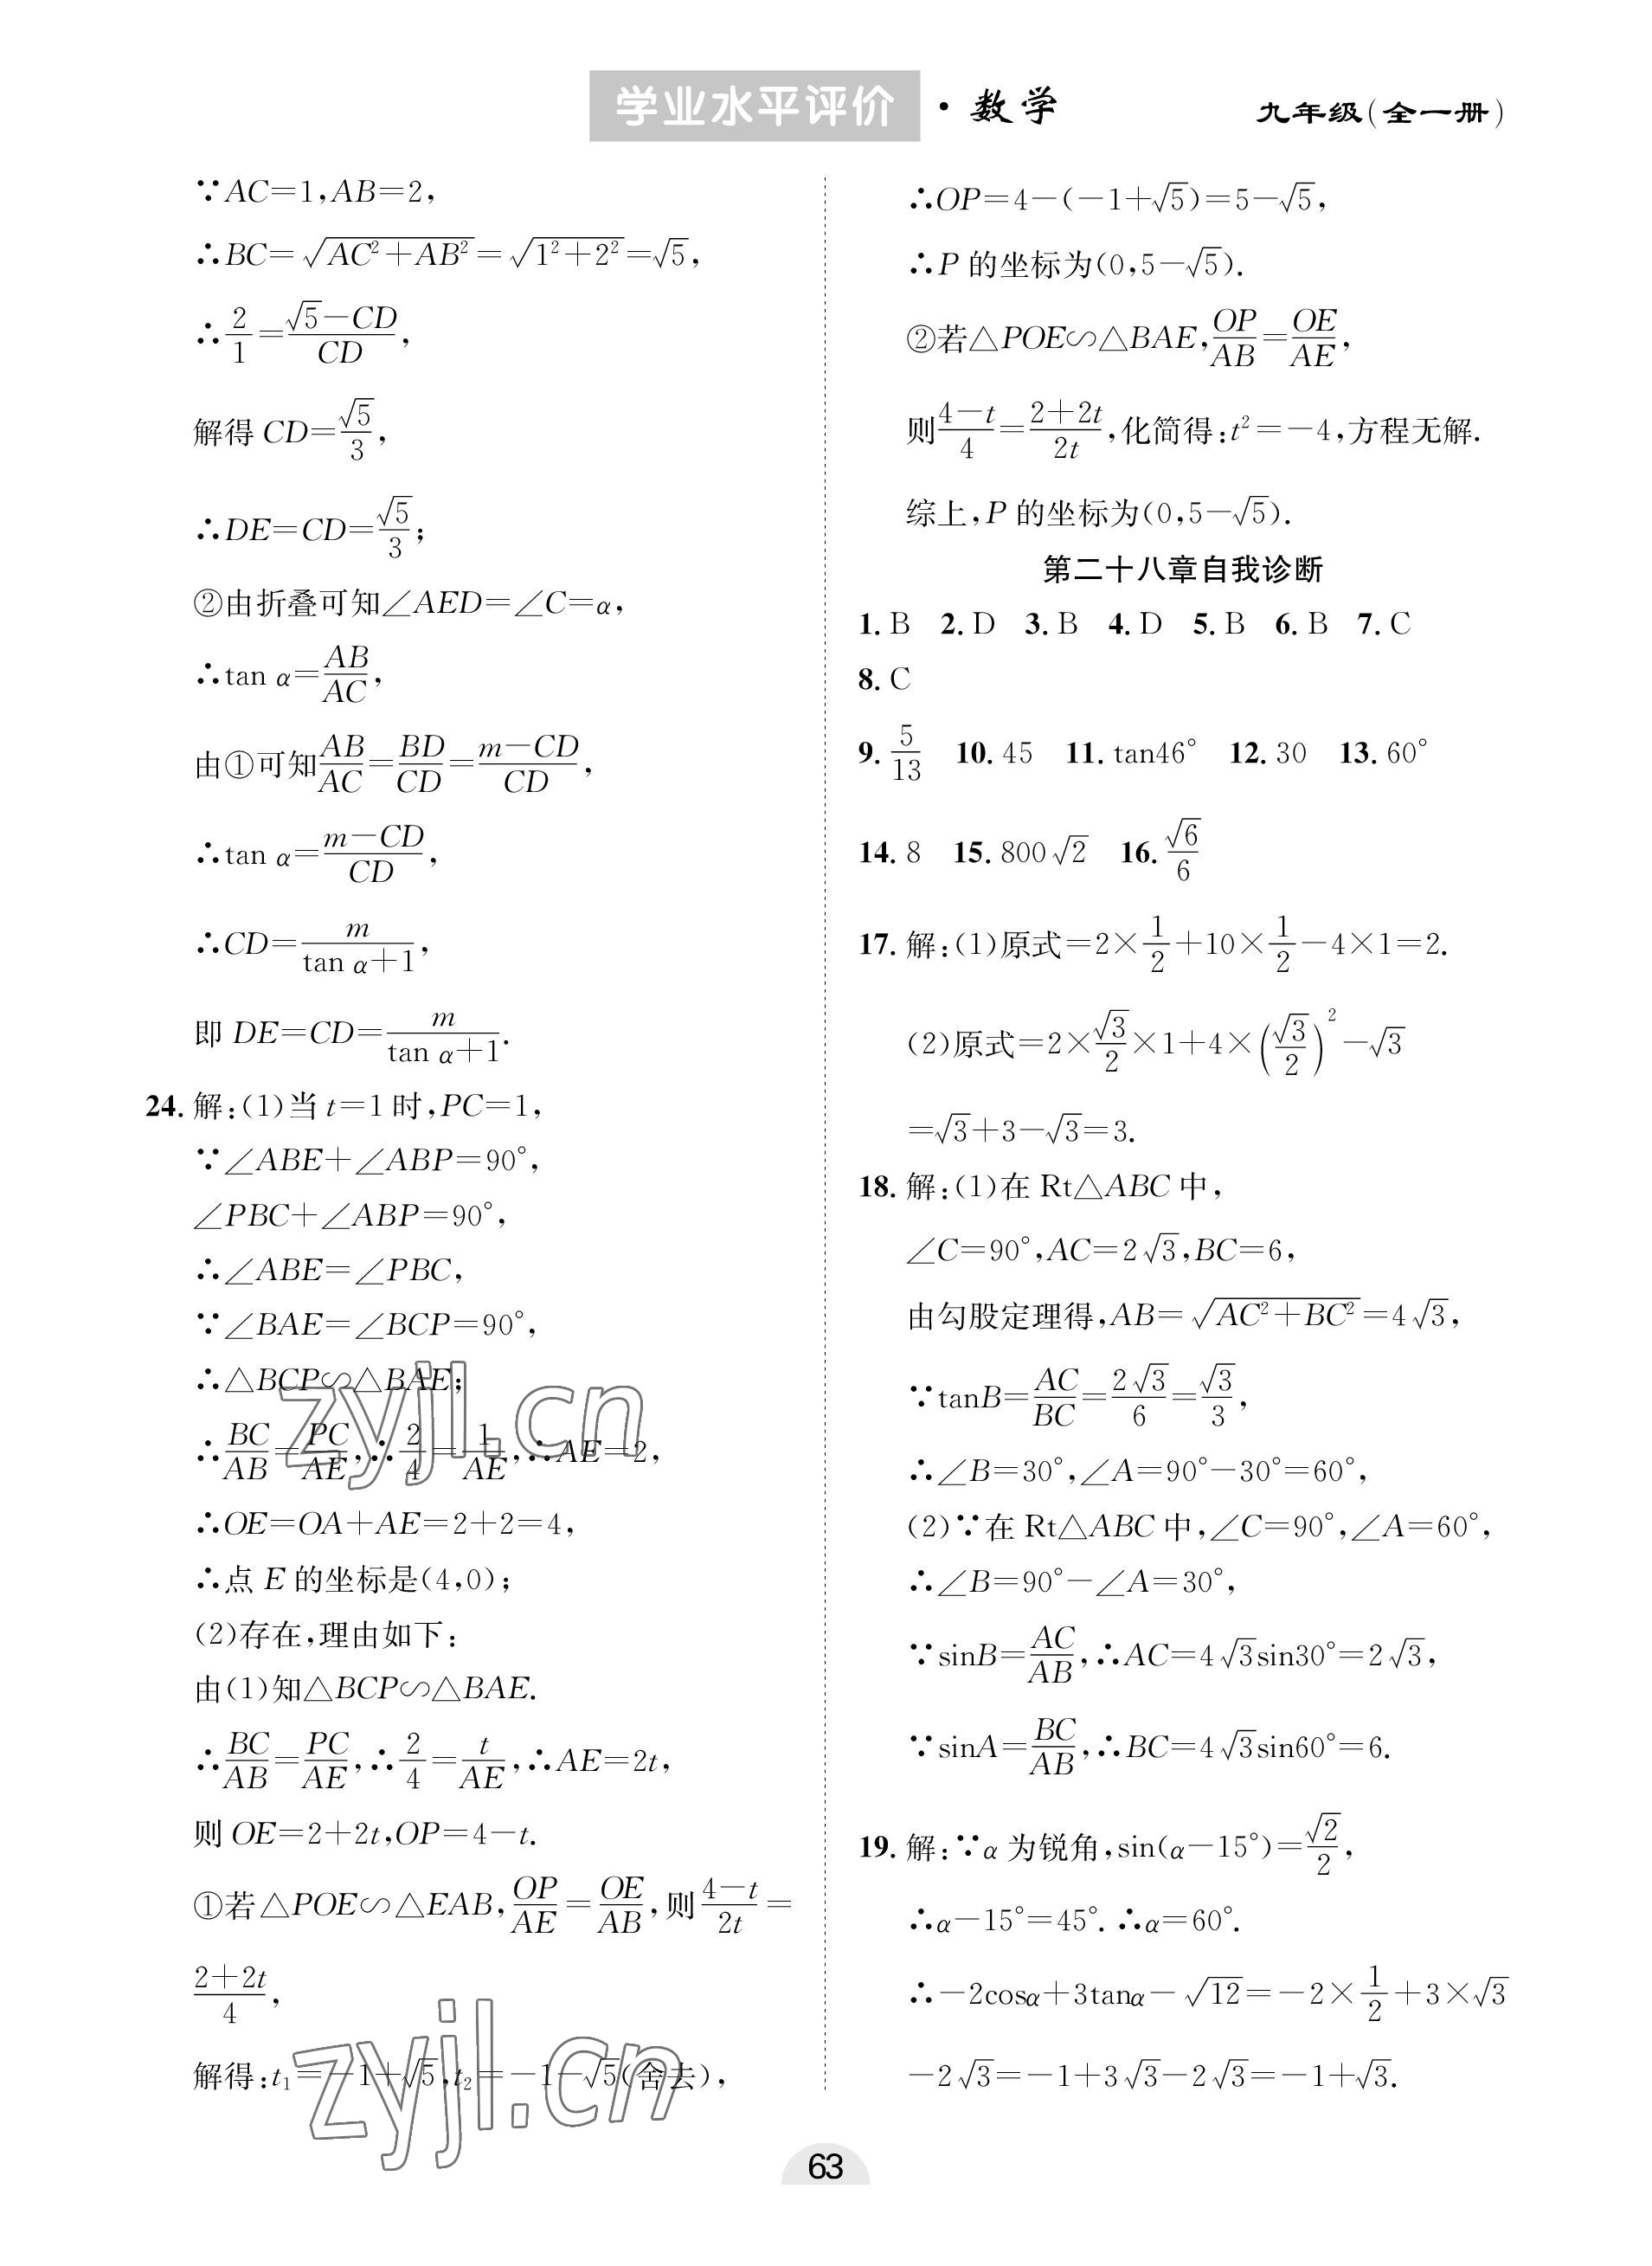 学业水平评价·数学 九年级(全一册)
∵AC=1,AB=2,
∴BC=√(AC²+AB²)=√(1²+2²)=√5,
∴2/1=(√5-CD)/CD,
解得 CD=√5/3,
∴DE=CD=√5/3;
②由折叠可知∠AED=∠C=α,
∴tan α=AB/AC,
由①可知AB/AC=BD/CD=(m-CD)/CD,
∴tan α=(m-CD)/CD,
∴CD=m/(tan α+1),
即 DE=CD=m/(tan α+1).
24. 解:(1)当 t=1 时,PC=1,
∵∠ABE+∠ABP=90°,
∠PBC+∠ABP=90°,
∴∠ABE=∠PBC,
∵∠BAE=∠BCP=90°,
∴△BCP∽△BAE;
∴BC/AB=PC/AE,∴2/4=1/AE,∴AE=2,
∴OE=OA+AE=2+2=4,
∴点 E 的坐标是(4,0);
(2)存在,理由如下:
由(1)知△BCP∽△BAE.
∴BC/AB=PC/AE,∴2/4=t/AE,∴AE=2t,
则 OE=2+2t,OP=4-t.
①若△POE∽△EAB,OP/AE=OE/AB,则(4-t)/2t=
(2+2t)/4,
解得:t₁=-1+√5,t₂=-1-√5(舍去),
∴OP=4-(-1+√5)=5-√5,
∴P 的坐标为(0,5-√5).
②若△POE∽△BAE,OP/AB=OE/AE,
则(4-t)/4=(2+2t)/2t,化简得:t²=-4,方程无解.
综上,P 的坐标为(0,5-√5).
第二十八章自我诊断
1. B 2. D 3. B 4. D 5. B 6. B 7. C
8. C
9. 5/13 10. 45 11. tan46° 12. 30 13. 60°
14. 8 15. 800√2 16. √6/6
17. 解:(1)原式=2×1/2+10×1/2-4×1=2.
(2)原式=2×√3/2×1+4×(√3/2)²-√3
=√3+3-√3=3.
18. 解:(1)在 Rt△ABC 中,
∠C=90°,AC=2√3,BC=6,
由勾股定理得,AB=√(AC²+BC²)=4√3,
∵tanB=AC/BC=2√3/6=√3/3,
∴∠B=30°,∠A=90°-30°=60°,
(2)∵在 Rt△ABC 中,∠C=90°,∠A=60°,
∴∠B=90°-∠A=30°,
∵sinB=AC/AB,∴AC=4√3sin30°=2√3,
∵sinA=BC/AB,∴BC=4√3sin60°=6.
19. 解:∵α 为锐角,sin(α-15°)=√2/2,
∴α-15°=45°.∴α=60°.
∴-2cosα+3tanα-√12=-2×1/2+3×√3
-2√3=-1+3√3-2√3=-1+√3.
63
zyjl.cn
zyjl.cn